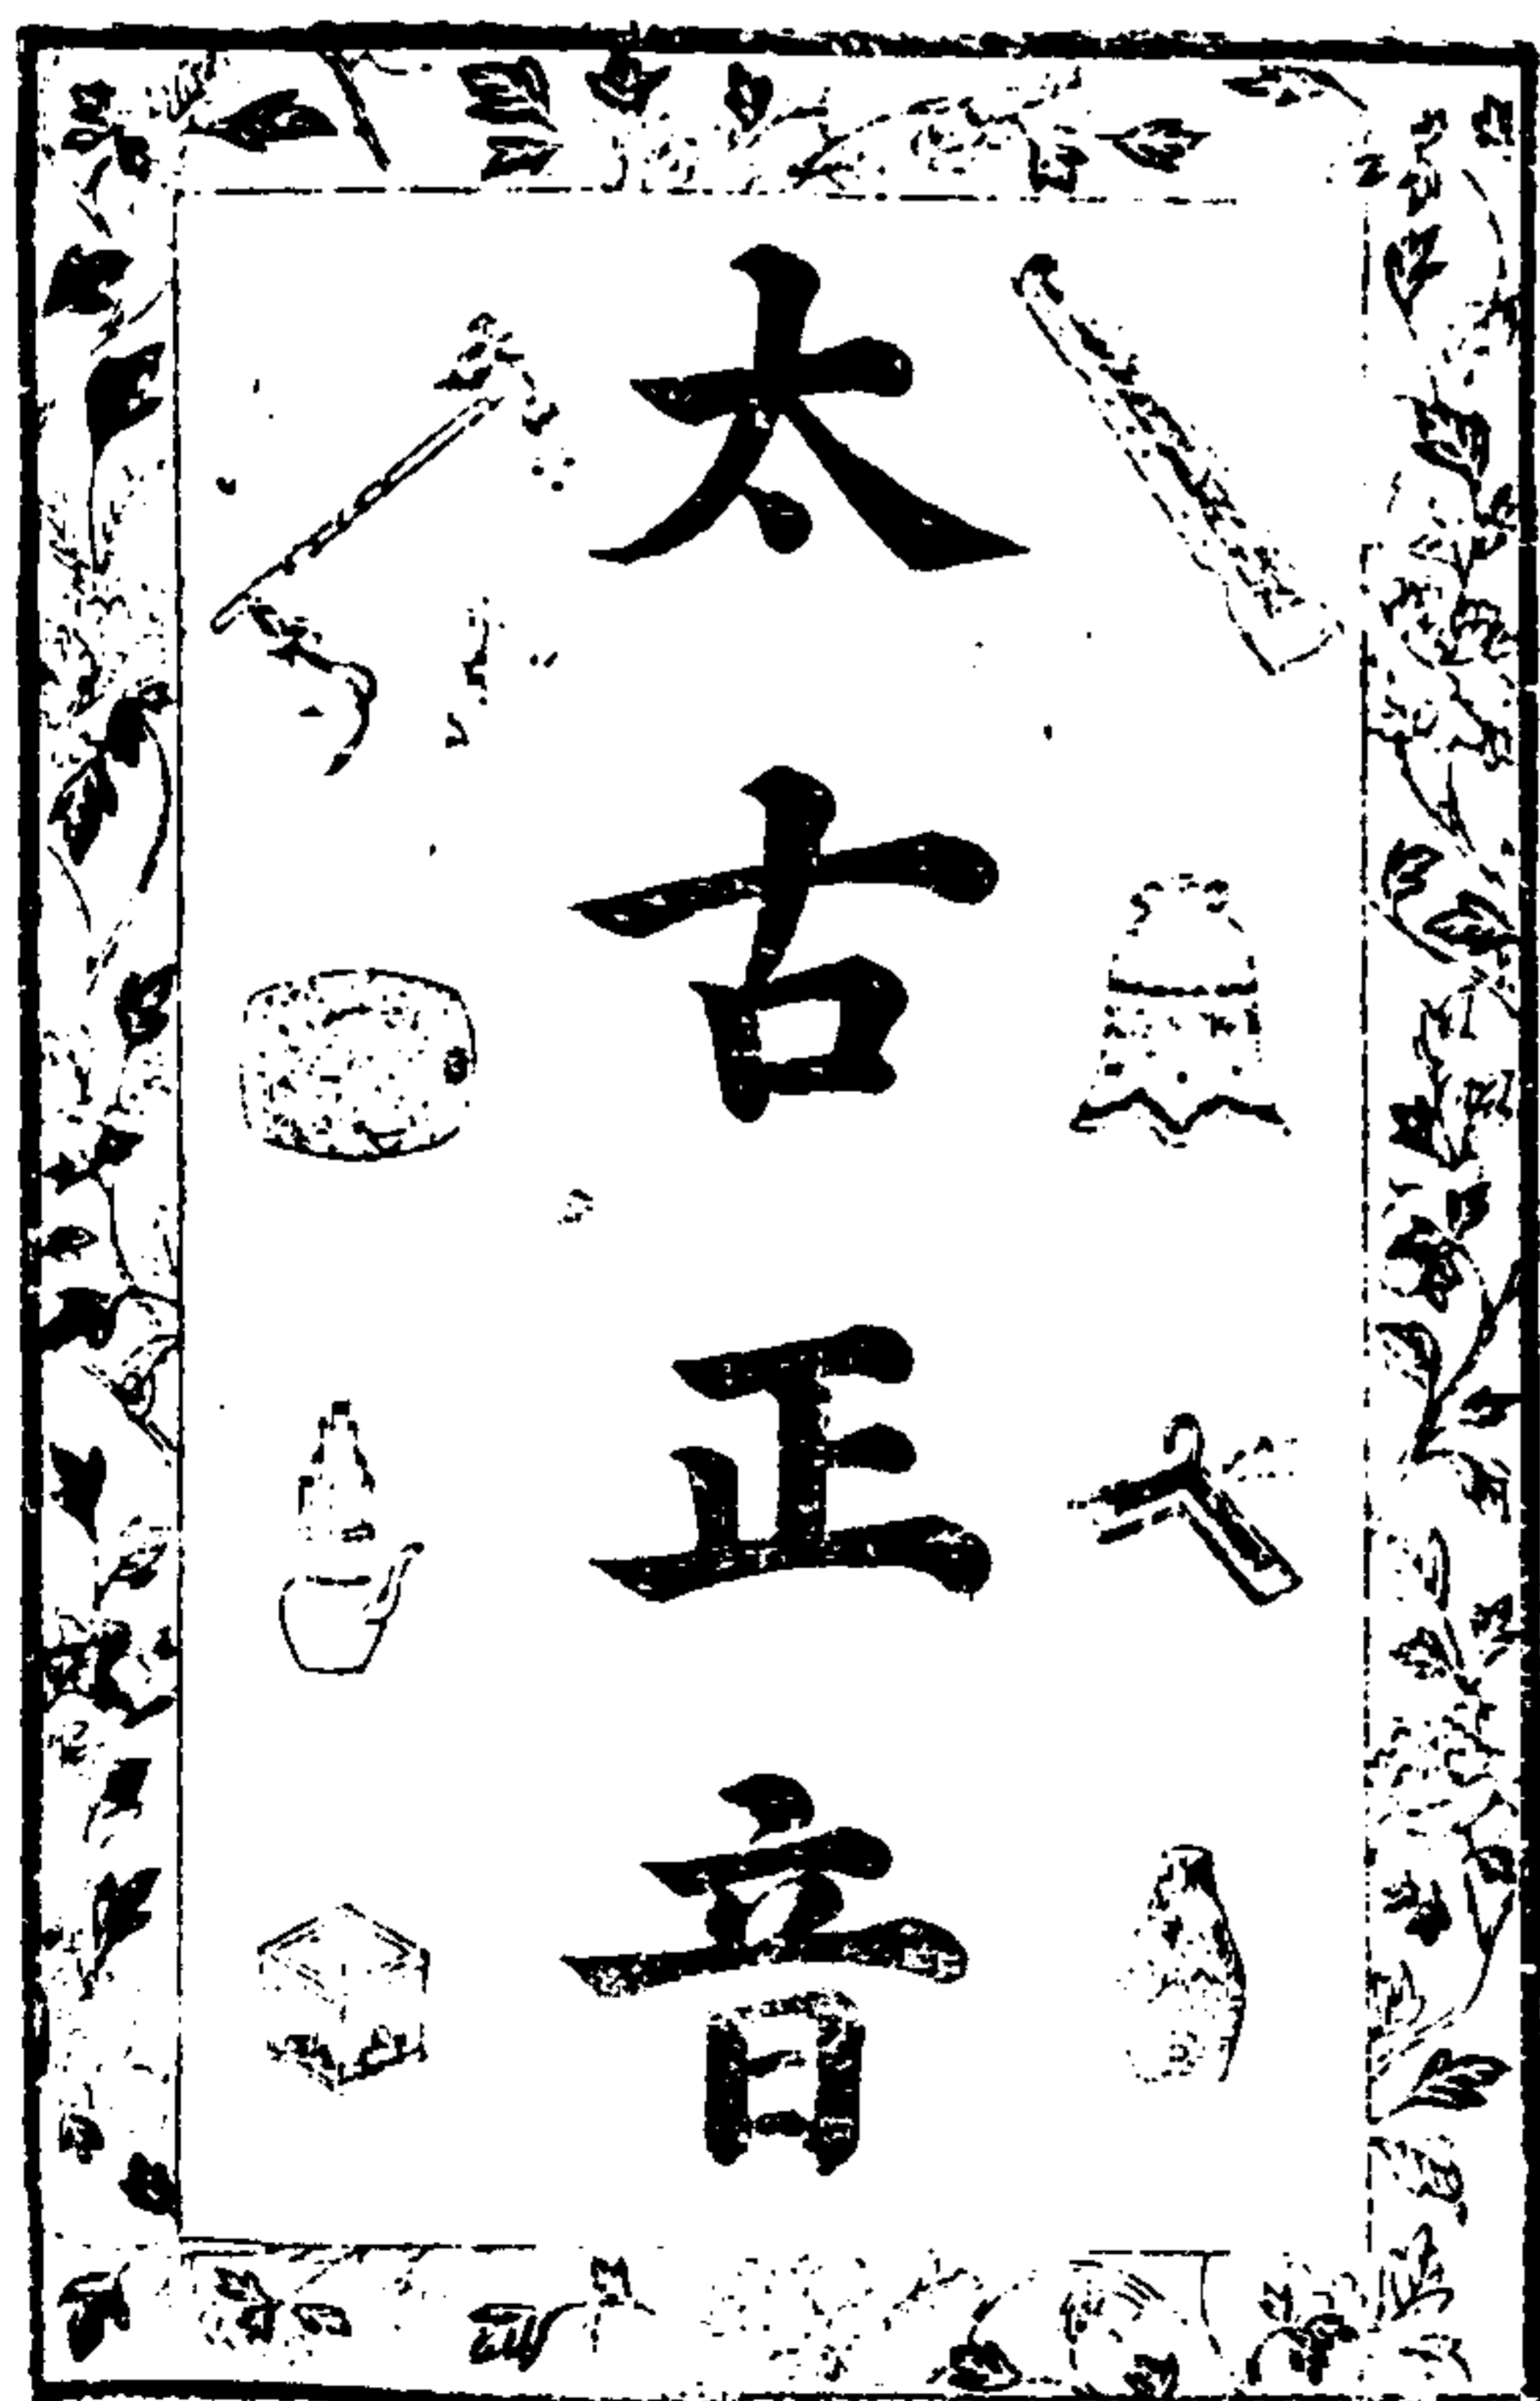 太古正音